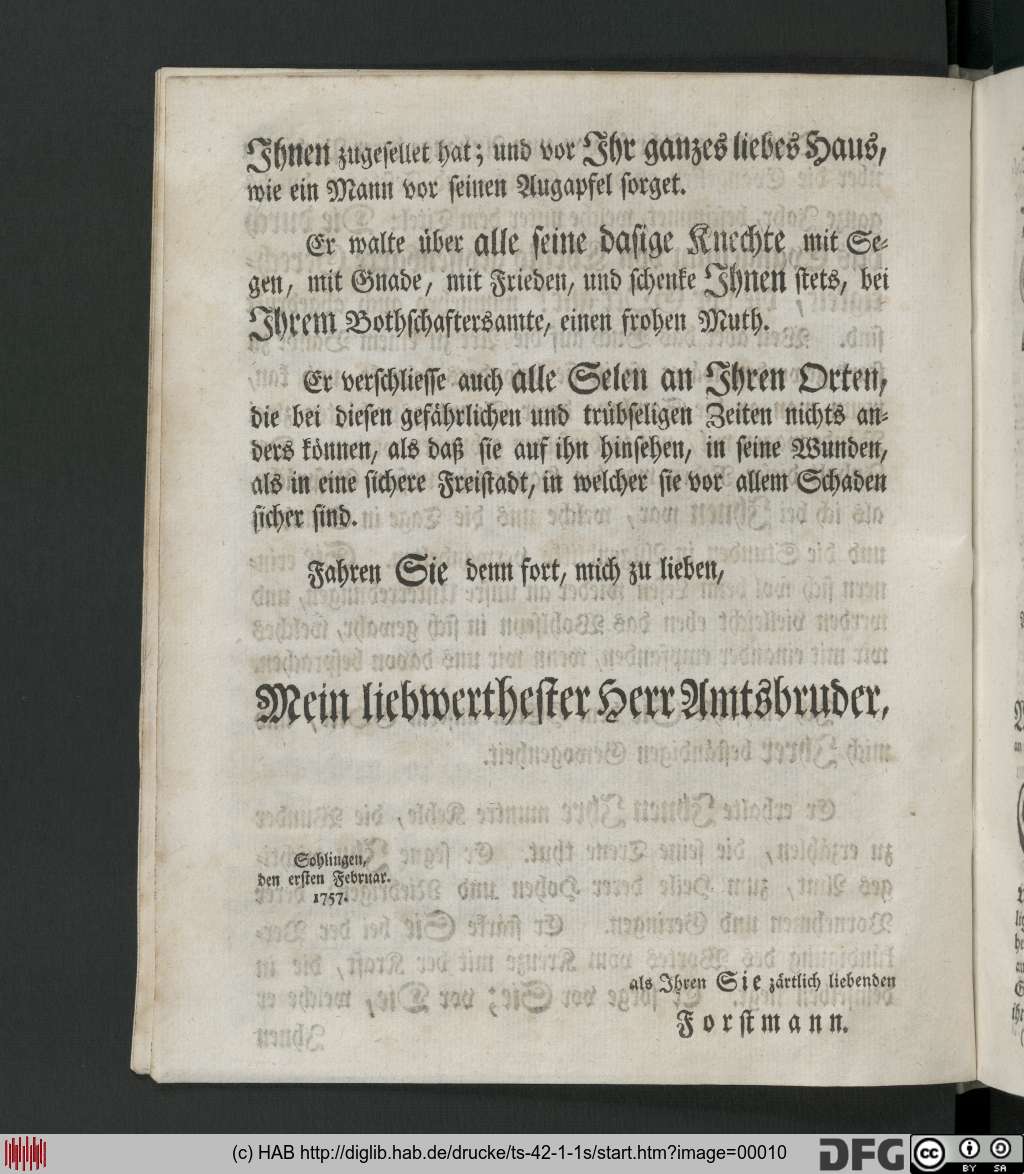 Ihnen zugesellet hat; und vor Ihr ganzes liebes Haus,
wie ein Mann vor seinen Augapfel sorget.
Er walte über alle seine dasige Knechte mit Se-
gen, mit Gnade, mit Frieden, und schenke Ihnen stets, bei
Ihrem Bothschaftersamte, einen frohen Muth.
Er verschliesse auch alle Selen an Ihren Orten,
die bei diesen gefährlichen und trübseligen Zeiten nichts an-
ders können, als daß sie auf ihn hinsehen, in seine Wunden,
als in eine sichere Freistadt, in welcher sie vor allem Schaden
sicher sind.
Fahren Sie denn fort, mich zu lieben,
Mein liebwerthester Herr Amtsbruder,
Sohlingen,
den ersten Februar.
1757.
als Ihren Sie zärtlich liebenden
Forstmann.
(c) HAB http://diglib.hab.de/drucke/ts-42-1-1s/start.htm?image=00010
DFG
cc
BY SA